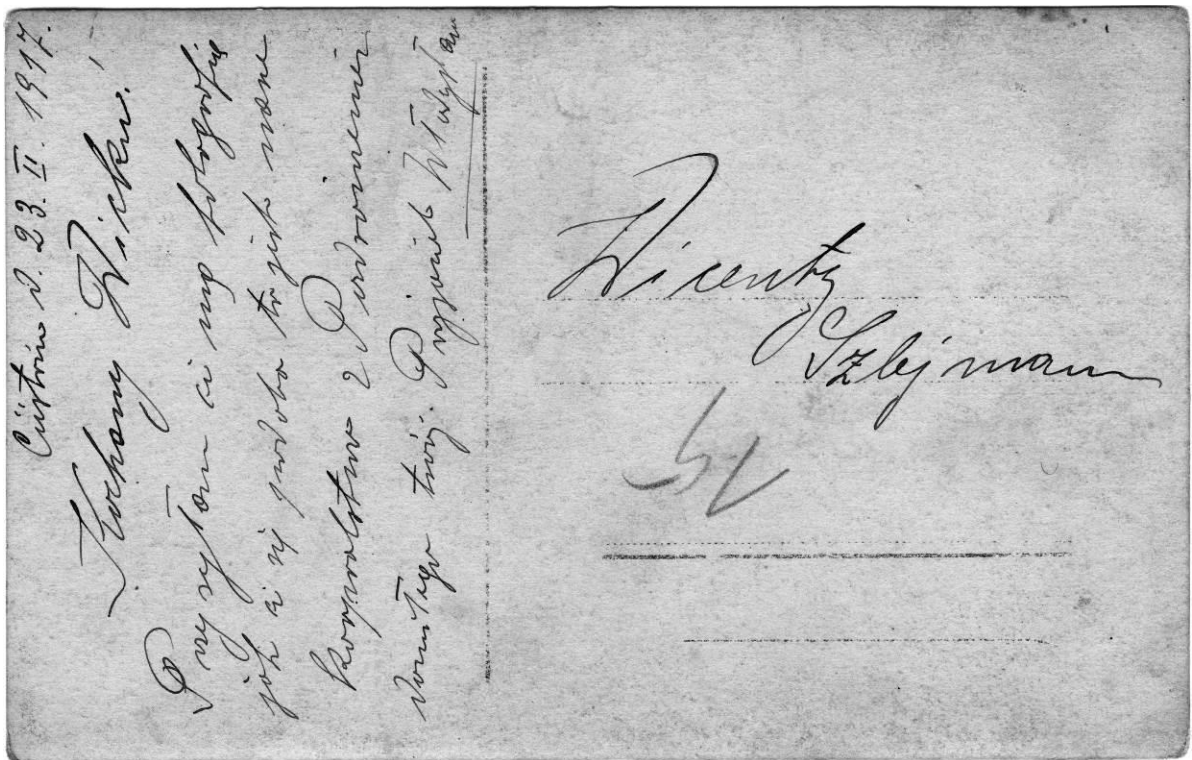 Cüstrin d. 23. II. 1917.
Kochany Wicku!
Przysyłam ci mą fotografię
jak ci się podoba to jest nasze
korporalstwo z Pozdrowieniem
twój. Przyjaciel Władysław
Wicenty
Szlejmann